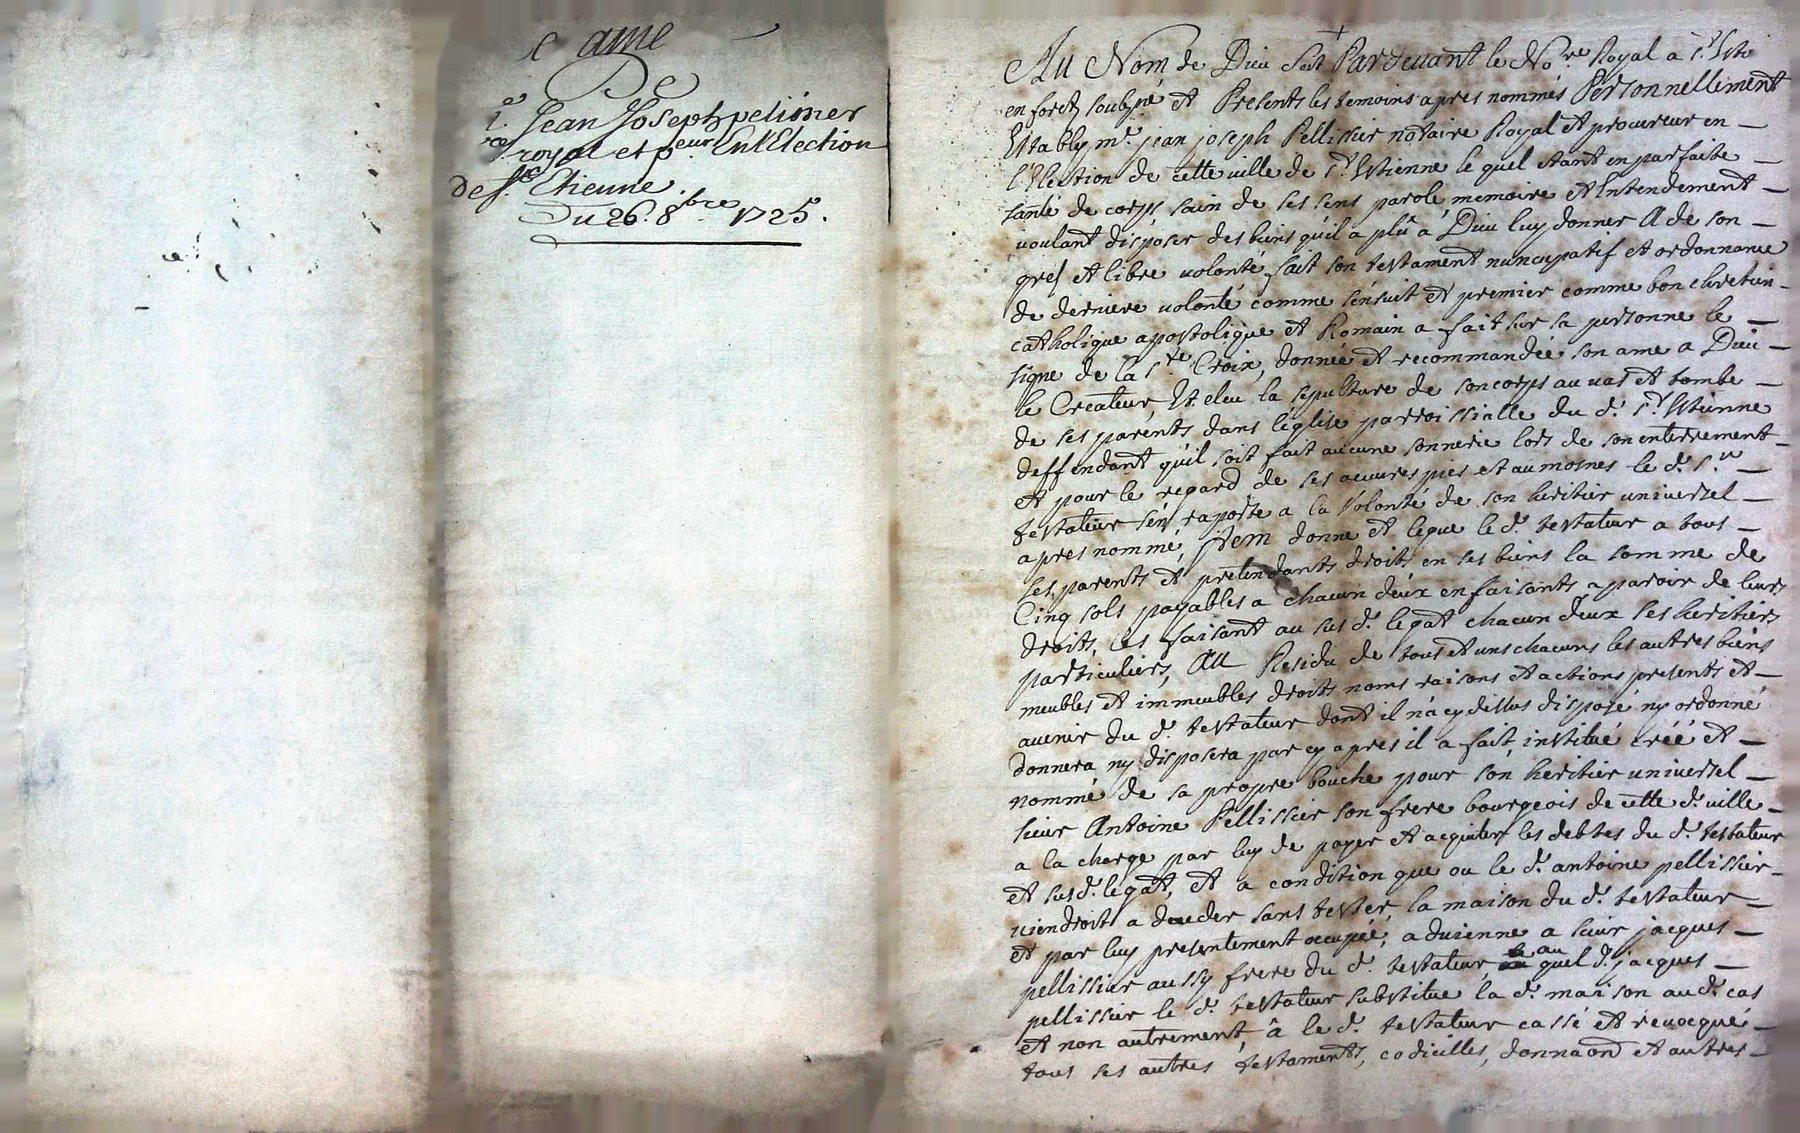 De
Jean Joseph pelissier
royal et p.eur En l'Election
de s.t Etienne
Du 26. 8.bre 1725.
Au Nom de Dieu soit Pardevant le No.re Royal à s.t Este
en forez soubz.né et Presents les temoins apres nommés Personnellement
Estably m.e jean joseph Pellissier notaire Royal et procureur en
l'Election de cette ville de s.t Estienne le quel etant en parfaite
santé de corps sain de ses sens parole, memoire et Entendement
voulant disposer des biens qu'il a plû a Dieu luy donner A de son
gré et libre volonté fait son testament nuncupatif et ordonnance
de derniere volonté comme sensuit et premier comme bon chretien
catholique apostolique et Romain a fait sur sa personne le
signe de la s.te Croix, donnée et recommandée son ame a Dieu
le Createur, Et eleu la sepulture de son corps au vas et tombe
de ses parents dans leglise parroissialle du d. s.t Estienne
deffendant qu'il soit fait aucune sonnerie lors de son enterrement
et pour le regard de ses oeuvres pies et aumosnes le d. s.r
testateur sen raporte a la Volonté de son heritier universel
apres nommé, Item donne et legue le d. testateur a tous
ses parents et prétendants droits en ses biens la somme de
Cinq sols payables a chacun deux en faisants aparoir de leurs
droits, les faisant au sus d. legat chacun deux ses heritiers
particuliers, Au Residu de tous et uns chacuns les autres biens
meubles et immeubles droits noms raisons et actions presents et
avenir du d. testateur dont il n'a cy dessus disposé ny ordonné
donnera ny disposera par cy apres il a fait, institué créé et
nommé de sa propre bouche pour son heritier universel
sieur Antoine Pellissier son frere bourgeois de cette d. ville
a la charge par luy de payer et acquiter les debtes du d. testateur
et sus d. legat, et a condition que ou le d. antoine pellissier
viendroit a deceder sans tester, la maison du d. testateur
et par luy presentement occupée, advienne a sieur jacques
pellissier aussy frere du d. testateur, au quel d. jacques
pellissier le d. testateur substitue la d. maison au d. cas
et non autrement, â le d. testateur cassé et revocqué
tous ses autres testaments, codicilles, donnaons et autres